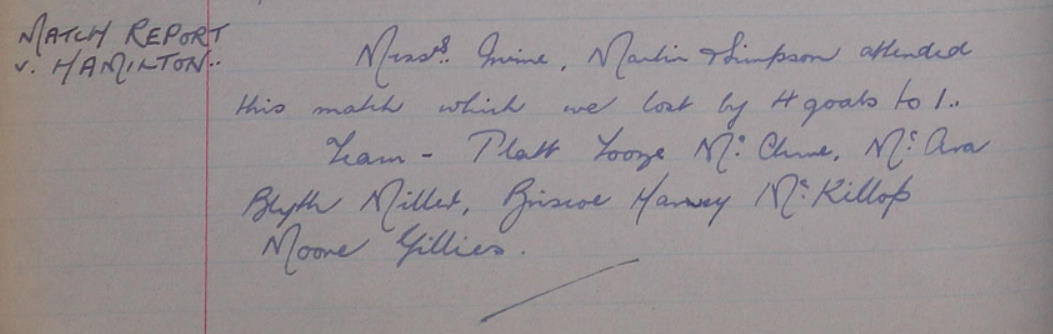 MATCH REPORT
v. HAMILTON..
Messrs. Irvine, Martin & Simpson attended
this match which we lost by 4 goals to 1..
Team - Platt Looze Mc Clure, Mc Ara
Blyth Miller, Briscoe Harvey Mc Killop
Moore Gillies.